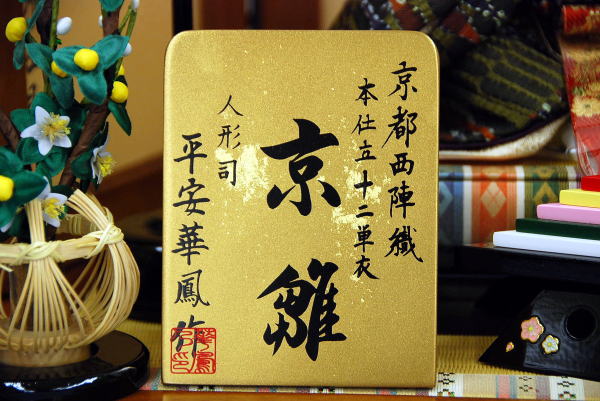 京都西陣織
本仕立十二単衣
京雛
人形司
平安華鳳作